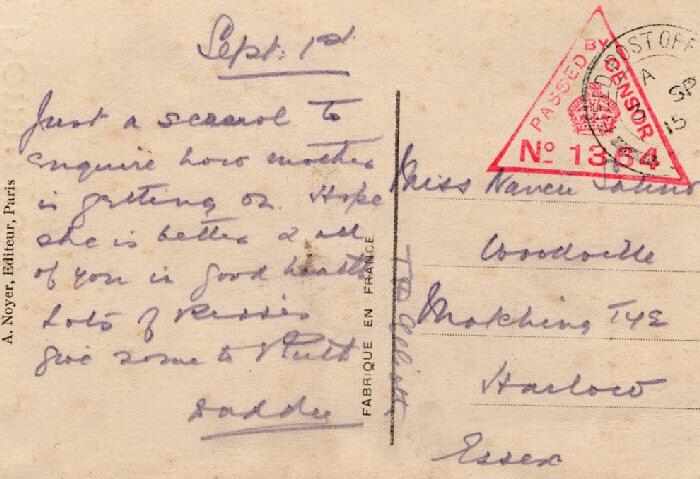 Sept. 1st
Just a scrawl to
enquire how mother
is getting on. Hope
she is better & all
of you in good health
Lots of kisses
give some to Ruth
Daddee
A. Noyer, Editeur, Paris
FABRIQUE EN FRANCE
PASSED BY CENSOR
No 1364
POST OFF
A
SP
15
Miss
Woodville
Matching Tye
Harlow
Essex